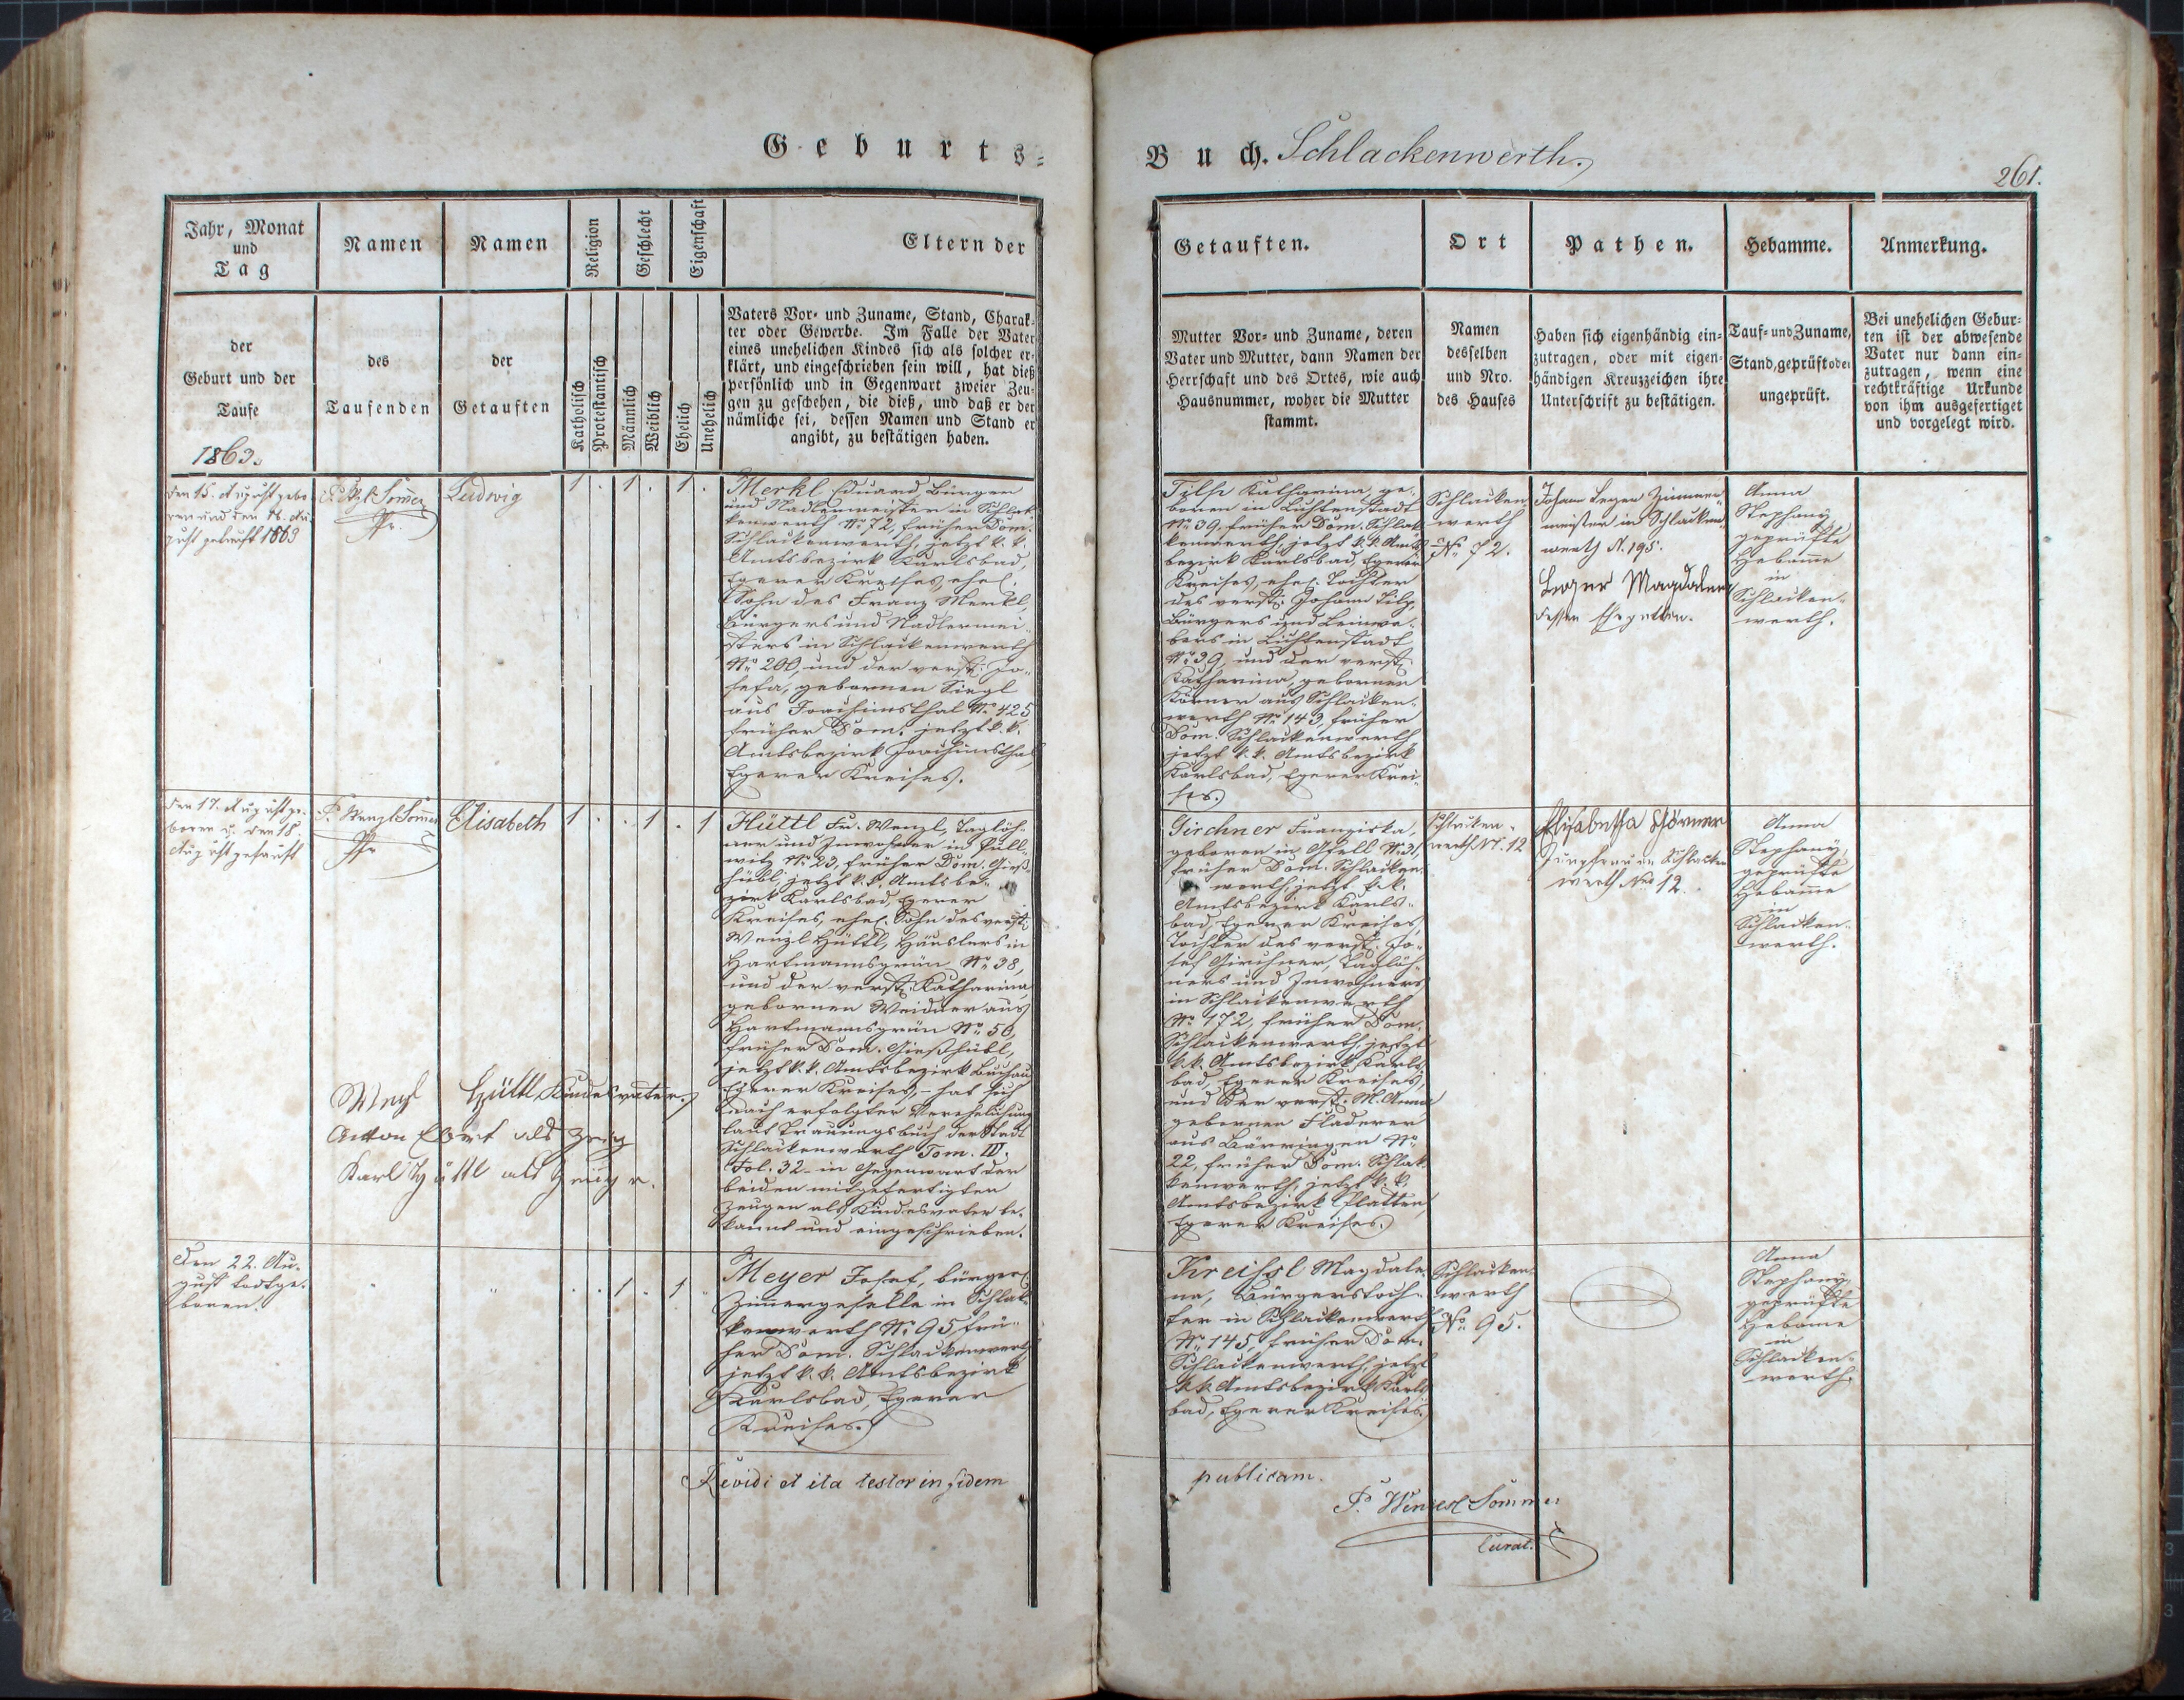 Geburts-
Buch. Schlackenwerth.
261.
Jahr, Monat
und
Tag
der
Geburt und der
Taufe
1863.
Namen
des
Taufenden
Namen
der
Getauften
Religion
Katholisch
Protestantisch
Geschlecht
Männlich
Weiblich
Eigenschaft
Ehelich
Unehelich
Eltern der
Vaters Vor- und Zuname, Stand, Charak-
ter oder Gewerbe. Im Falle der Vater
eines unehelichen Kindes sich als solcher er-
klärt, und eingeschrieben sein will, hat dieß
persönlich und in Gegenwart zweier Zeu-
gen zu geschehen, die dieß, und daß er der
nämliche sei, dessen Namen und Stand er
angibt, zu bestätigen haben.
Getauften.
Mutter Vor- und Zuname, deren
Vater und Mutter, dann Namen der
Herrschaft und des Ortes, wie auch
Hausnummer, woher die Mutter
stammt.
Ort
Namen
desselben
und Nro.
des Hauses
Pathen.
Haben sich eigenhändig ein-
zutragen, oder mit eigen-
händigen Kreuzzeichen ihre
Unterschrift zu bestätigen.
Hebamme.
Tauf- und Zuname,
Stand, geprüft oder
ungeprüft.
Anmerkung.
Bei unehelichen Gebur-
ten ist der abwesende
Vater nur dann ein-
zutragen, wenn eine
rechtkräftige Urkunde
von ihm ausgefertiget
und vorgelegt wird.
den 15. August gebo-
ren und den 16. Au-
gust getauft 1863
Sommer
Pfr.
Ludwig
1 . 1 . 1 .
Merkl Eduard Bürger
und Nadlermeister in Schlak-
kenwerth No 72, früher Dom.
Schlackenwerth, jetzt k. k.
Amtsbezirk Karlsbad,
Egerer Kreises, ehel.
Sohn des Franz Merkl,
Bürgers und Nadlermei-
sters in Schlackenwerth
No 200, und der verst. Jo-
sefa, gebornen Siegl
aus Joachimsthal No 425
früher Dom. jetzt k. k.
Amtsbezirk Joachimsthal
Egerer Kreises.
Katharina, ge-
boren in Lichtenstadt
No 39, früher Dom. Schlak-
kenwerth, jetzt k. k. Amts-
bezirk Karlsbad, Egerer
Kreises, ehel. Tochter
des verst. Johann
Bürgers und Leinwe-
bers in Lichtenstadt
No 39, und der verst.
Katharina, gebornen
Körner aus Schlacken-
werth No 143, früher
Dom. Schlackenwerth
jetzt k. k. Amtsbezirk
Karlsbad, Egerer Krei-
ses.
Schlacken-
werth
No 72.
Johann Zimmer-
meister in Schlacken-
werth N. 195.
Magdalena
dessen Ehegattin.
Anna
Stephany
geprüfte
Hebamme
in
Schlacken-
werth.
den 17. August ge-
boren u. den 18.
August getauft
P. Wenzl Sommer
Pfr
Elisabeth
1 . . 1 . 1
Hüttl Fr. Wenzl, Taglöh-
ner und Inwohner in Püll-
witz No 23, früher Dom. Gieß-
hübl, jetzt k. k. Amtsbe-
zirk Karlsbad, Egerer
Kreises, ehel. Sohn des verst.
Wenzl Hüttl, Häuslers in
Hartmannsgrün No 38,
und der verst. Katharina
gebornen Weidner aus
Hartmannsgrün No 50,
früher Dom. Gießhübl,
jetzt k. k. Amtsbezirk Buchau
Egerer Kreises, - hat sich
nach erfolgter Verehelichung
laut Trauungsbuch der Stadt
Schlackenwerth Tom. III.
Fol. 32 - in Gegenwart der
beiden mitgefertigten
Zeugen als Kindesvater be-
kannt und eingeschrieben.
Wenzl Hüttl Kindesvater.
Anton als Zeug
Karl Hüttl als Zeuge.
Girchner Franziska,
geboren in Gfell No 31,
früher Dom. Schlacken-
werth, jetzt k. k.
Amtsbezirk Karls-
bad, Egerer Kreises,
Tochter des verst. Jo-
sef Girchner, Taglöh-
ners und Inwohners
in Schlackenwerth
No 172, früher Dom.
Schlackenwerth, jetzt
k. k. Amtsbezirk Karls-
bad, Egerer Kreises,
und der verst. M. Anna
gebornen Fladerer
aus Bärringen No
22, früher Dom. Schlak-
kenwerth, jetzt k. k.
Amtsbezirk Platten,
Egerer Kreises.
Schlacken-
werth N. 12
Elisabetha
Jungfrau in Schlacken
werth Nro 12.
Anna
Stephany,
geprüfte
Hebamme
in
Schlacken-
werth.
den 22. Au-
gust todtge-
boren.
. . 1 . 1
Meyer Josef, bürgerl.
Zimmergeselle in Schlak-
kenwerth No 95 frü-
her Dom. Schlackenwerth
jetzt k. k. Amtsbezirk
Karlsbad, Egerer
Kreises.
Kreissl Magdale-
na, Bürgerstoch-
ter in Schlackenwerth
No 145, früher Dom.
Schlackenwerth, jetzt
k. k. Amtsbezirk Karls-
bad, Egerer Kreises.
Schlacken-
werth
No 95.
Anna
Stephany,
geprüfte
Hebamme
in
Schlacken-
werth.
Revidi et ita testor in fidem
publicam.
P. Wenzel Sommer
Curat.